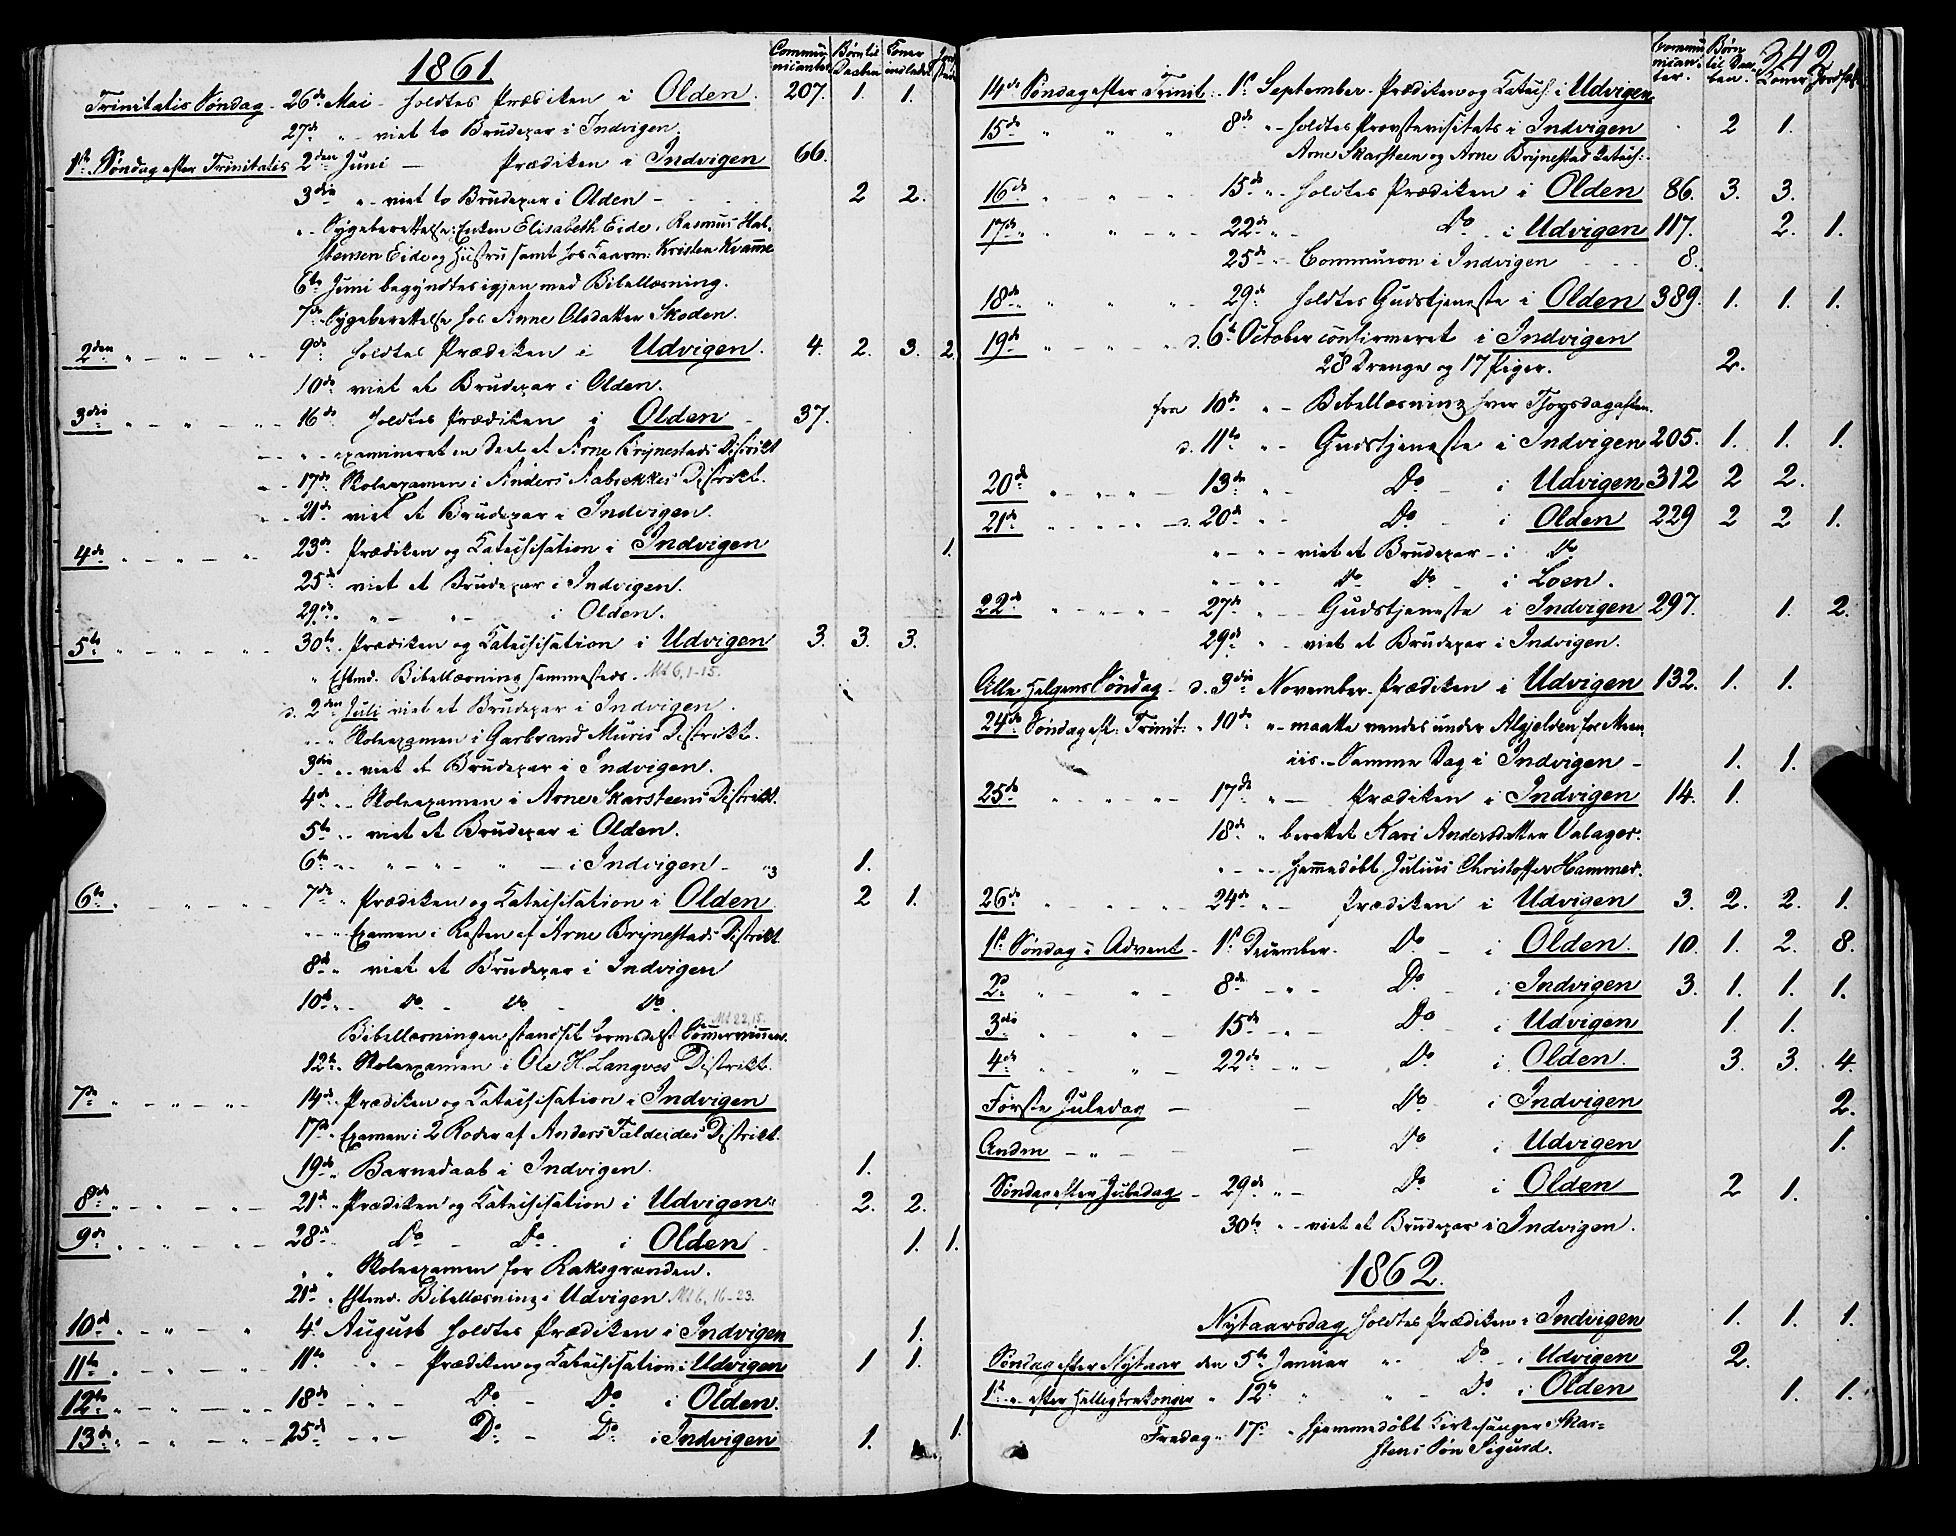 1861
Communicanter. Børn til Daaben Koner indledet
Trinitatis Søndag - 26de Mai - holdtes Prædiken i Olden. 207. 1. 1.
27de " - viet to Brudepar i Indvigen.
1ste Søndag efter Trinitatis 2den Juni - Prædiken i Indvigen 66.
3die " - viet to Brudepar i Olden - 2 2.
" - Sygeberettelse: Enken Elisabeth Eide, Rasmus Hal-
stensen Eide og Hustru samt hos Kaarm: Kristen Kvamme
6te Juni begyndtes igjen med Bibellæsning.
7de - Sygeberettelse hos Anne Olsdatter Skoden.
2den " - " - " - 9de holdtes Prædiken i Udvigen. 4. 2. 3. 2.
10de viet et Brudepar i Olden.
3die " - " - " - 16de holdtes Prædiken i Olden - 37.
" - examineret en Deel af Arne Brynestads Distrikt
" - 17de Skoleexamen i Anders Aabrekkes Distrikt.
" - 21de viet et Brudepar i Indvigen.
4de " - " - " 23de Prædiken og Katechisation i Indvigen 1.
25de viet et Brudepar i Indvigen.
29de " - " - i Olden.
5te " - " - " - 30te. Prædiken og Katechisation i Udvigen 3. 3. 3.
" Eftmd. Bibellæsning sammesteds. Mt 6, 1-15.
d. 2den Juli viet et Brudepar i Indvigen.
" - " Skoleexamen i Garbrand Muris Distrikt.
3die " - viet et Brudepar i Indvigen.
4de " - Skoleexamen i Arne Skarsteens Distrikt.
5te " - viet et Brudepar i Olden.
6te " - " - " - " - i Indvigen - "3 1.
6te " - " - " - 7de " Prædiken og Katechisation i Olden 2 1.
" - " Examen i Resten af Arne Brynestads Distrikt.
8de " viet et Brudepar i Indvigen
10de " - Do - Do - Do.
Mt 22, 15.
Bibellæsningen standset formedelst Sommervinnen.
12te " Skoleexamen i Ole H. Langves Distrikt.
7de " - " - " - 14de " Prædiken og Katechisation i Indvigen
17de " Examen i 2 Roder af Anders Faldeides Distrikt.
19de " Barnedaab i Indvigen. 1.
8de " - " - " - 21de " Prædiken og Katechisation i Udvigen " 2. 2.
9de " - " - " - 28de Do - Do - i Olden 1. 1.
" " Skoleexamen for Raksgrenden.
21de " Eftmd. Bibellæsning i Udvigen Mt 6, 16-23.
10de " - " - " 4de August holdtes Prædiken i Indvigen 1.
11te " - " - " - 11te " - Prædiken og Katechisation i Udvigen 1 1.
12te " - " - " - 18de " - Do - Do i Olden.
13de " - " - " - 25de " - Do - Do i Indvigen 1. 1.
342
Communicanter. Børn til Daaben. Koner
14de Søndag efter Trinit: 1ste September - Prædiken og Katech: i Udvigen
15de " " " 8de " - holdtes Provstevisitats i Indvigen 2 1.
Arne Skarsteen og Arne Brynestad Katech:
16de " - " - 15de " - holdtes Prædiken i Olden 86. 3. 3.
17de " " - " - 22de " - Do i Udvigen 117. 2. 1.
25de " - Communion i Indvigen 8.
18de " " " - 29de " holdtes Gudstjeneste i Olden 389. 1. 1. 1.
19de " - " - " d. 6te October confirmeret i Indvigen
28 Drenge og 17 Piger. 2.
fra 10de " - Bibellæsning hver Thorsdagaften.
d. 11te " - Gudstjeneste i Indvigen 205. 1. 1. 1.
20de " - " - " - 13de " - Do - i Udvigen 312 2 2.
21de " - " - " - d. 20de " - Do - i Olden 229 2 2 1.
" - " - viet et Brudepar - i Do
" - " - Do Do - i Loen.
22de " - " - " - 27de " - Gudstjeneste i Indvigen 297. 1. 2.
29de " - viet et Brudepar i Indvigen.
Alle Helgens Søndag - d. 3die November - Prædiken i Udvigen 132. 1. 1.
24de Søndag ef: Trinit: " 10de " - maatte vendes under Alfjelden for Meen-
iis. - Samme Dag i Indvigen - 1. 1.
25de " - " - " - 17de " - Prædiken i Indvigen 14. 1.
18de " berettet Kari Andersdatter Valager.
" - " - Hjemmedøbt Julius Christoffer Hammer.
26de " - " - " 24de " - Prædiken i Udvigen 3. 2. 2. 1.
1ste Søndag i Advent - 1ste December. Do - i Olden. 10. 1. 2. 8.
2d. " - " - 8de - " - Do - i Indvigen 3. 1. 1. 1.
3die " - " - 15de - " - Do - i Udvigen 1. 1.
4de " - " - 22de - " - Do i Olden. 3. 3. 4.
Første Juledag - - Do i Indvigen 2.
Anden - " - - Do i Udvigen 1.
Søndag efter Juledag - 29de " - Do i Olden 2 1.
30te " - viet et Brudepar i Indvigen.
1862.
Nytaarsdag holdtes Prædiken i Indvigen 1. 1. 1.
Søndag efter Nytaar den 5te Januar " - Do - i Udvigen 2.
1ste " - efter Helligtrekonger " 12te " " - Do i Olden 1. 1.
Fredag " 17de " hjemmedøbt Kirkesanger Skar-
stens Søn Sigurd.